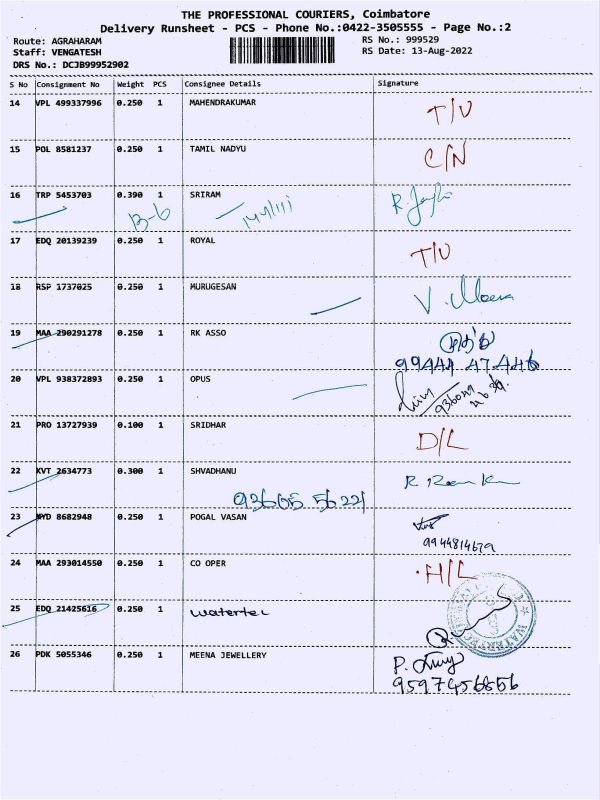 THE PROFESSIONAL COURIERS, Coimbatore
Delivery Runsheet - PCS - Phone No.:0422-3505555 - Page No.:2
Route: AGRAHARAM
Staff: VENGATESH
DRS No.: DCJB99952902
RS No.: 999529
RS Date: 13-Aug-2022
S No Consignment No Weight PCS Consignee Details Signature
14 VPL 499337996 0.250 1 MAHENDRAKUMAR T/U
15 POL 8581237 0.250 1 TAMIL NADYU C/N
16 TRP 5453703 0.390 1 SRIRAM
13-6
17 EDQ 20139239 0.250 1 ROYAL T/U
18 RSP 1737025 0.250 1 MURUGESAN V. Meena
19 MAA 290291278 0.250 1 RK ASSO
99444 47446
20 VPL 938372893 0.250 1 OPUS
21 PRO 13727939 0.100 1 SRIDHAR D/L
22 KVT 2634773 0.300 1 SHVADHANU
93605 56221
23 MYD 8682948 0.250 1 POGAL VASAN
9944814679
24 MAA 293014550 0.250 1 CO OPER H/L
25 EDQ 21425616 0.250 1 watertec
26 PDK 5055346 0.250 1 MEENA JEWELLERY
9597456856